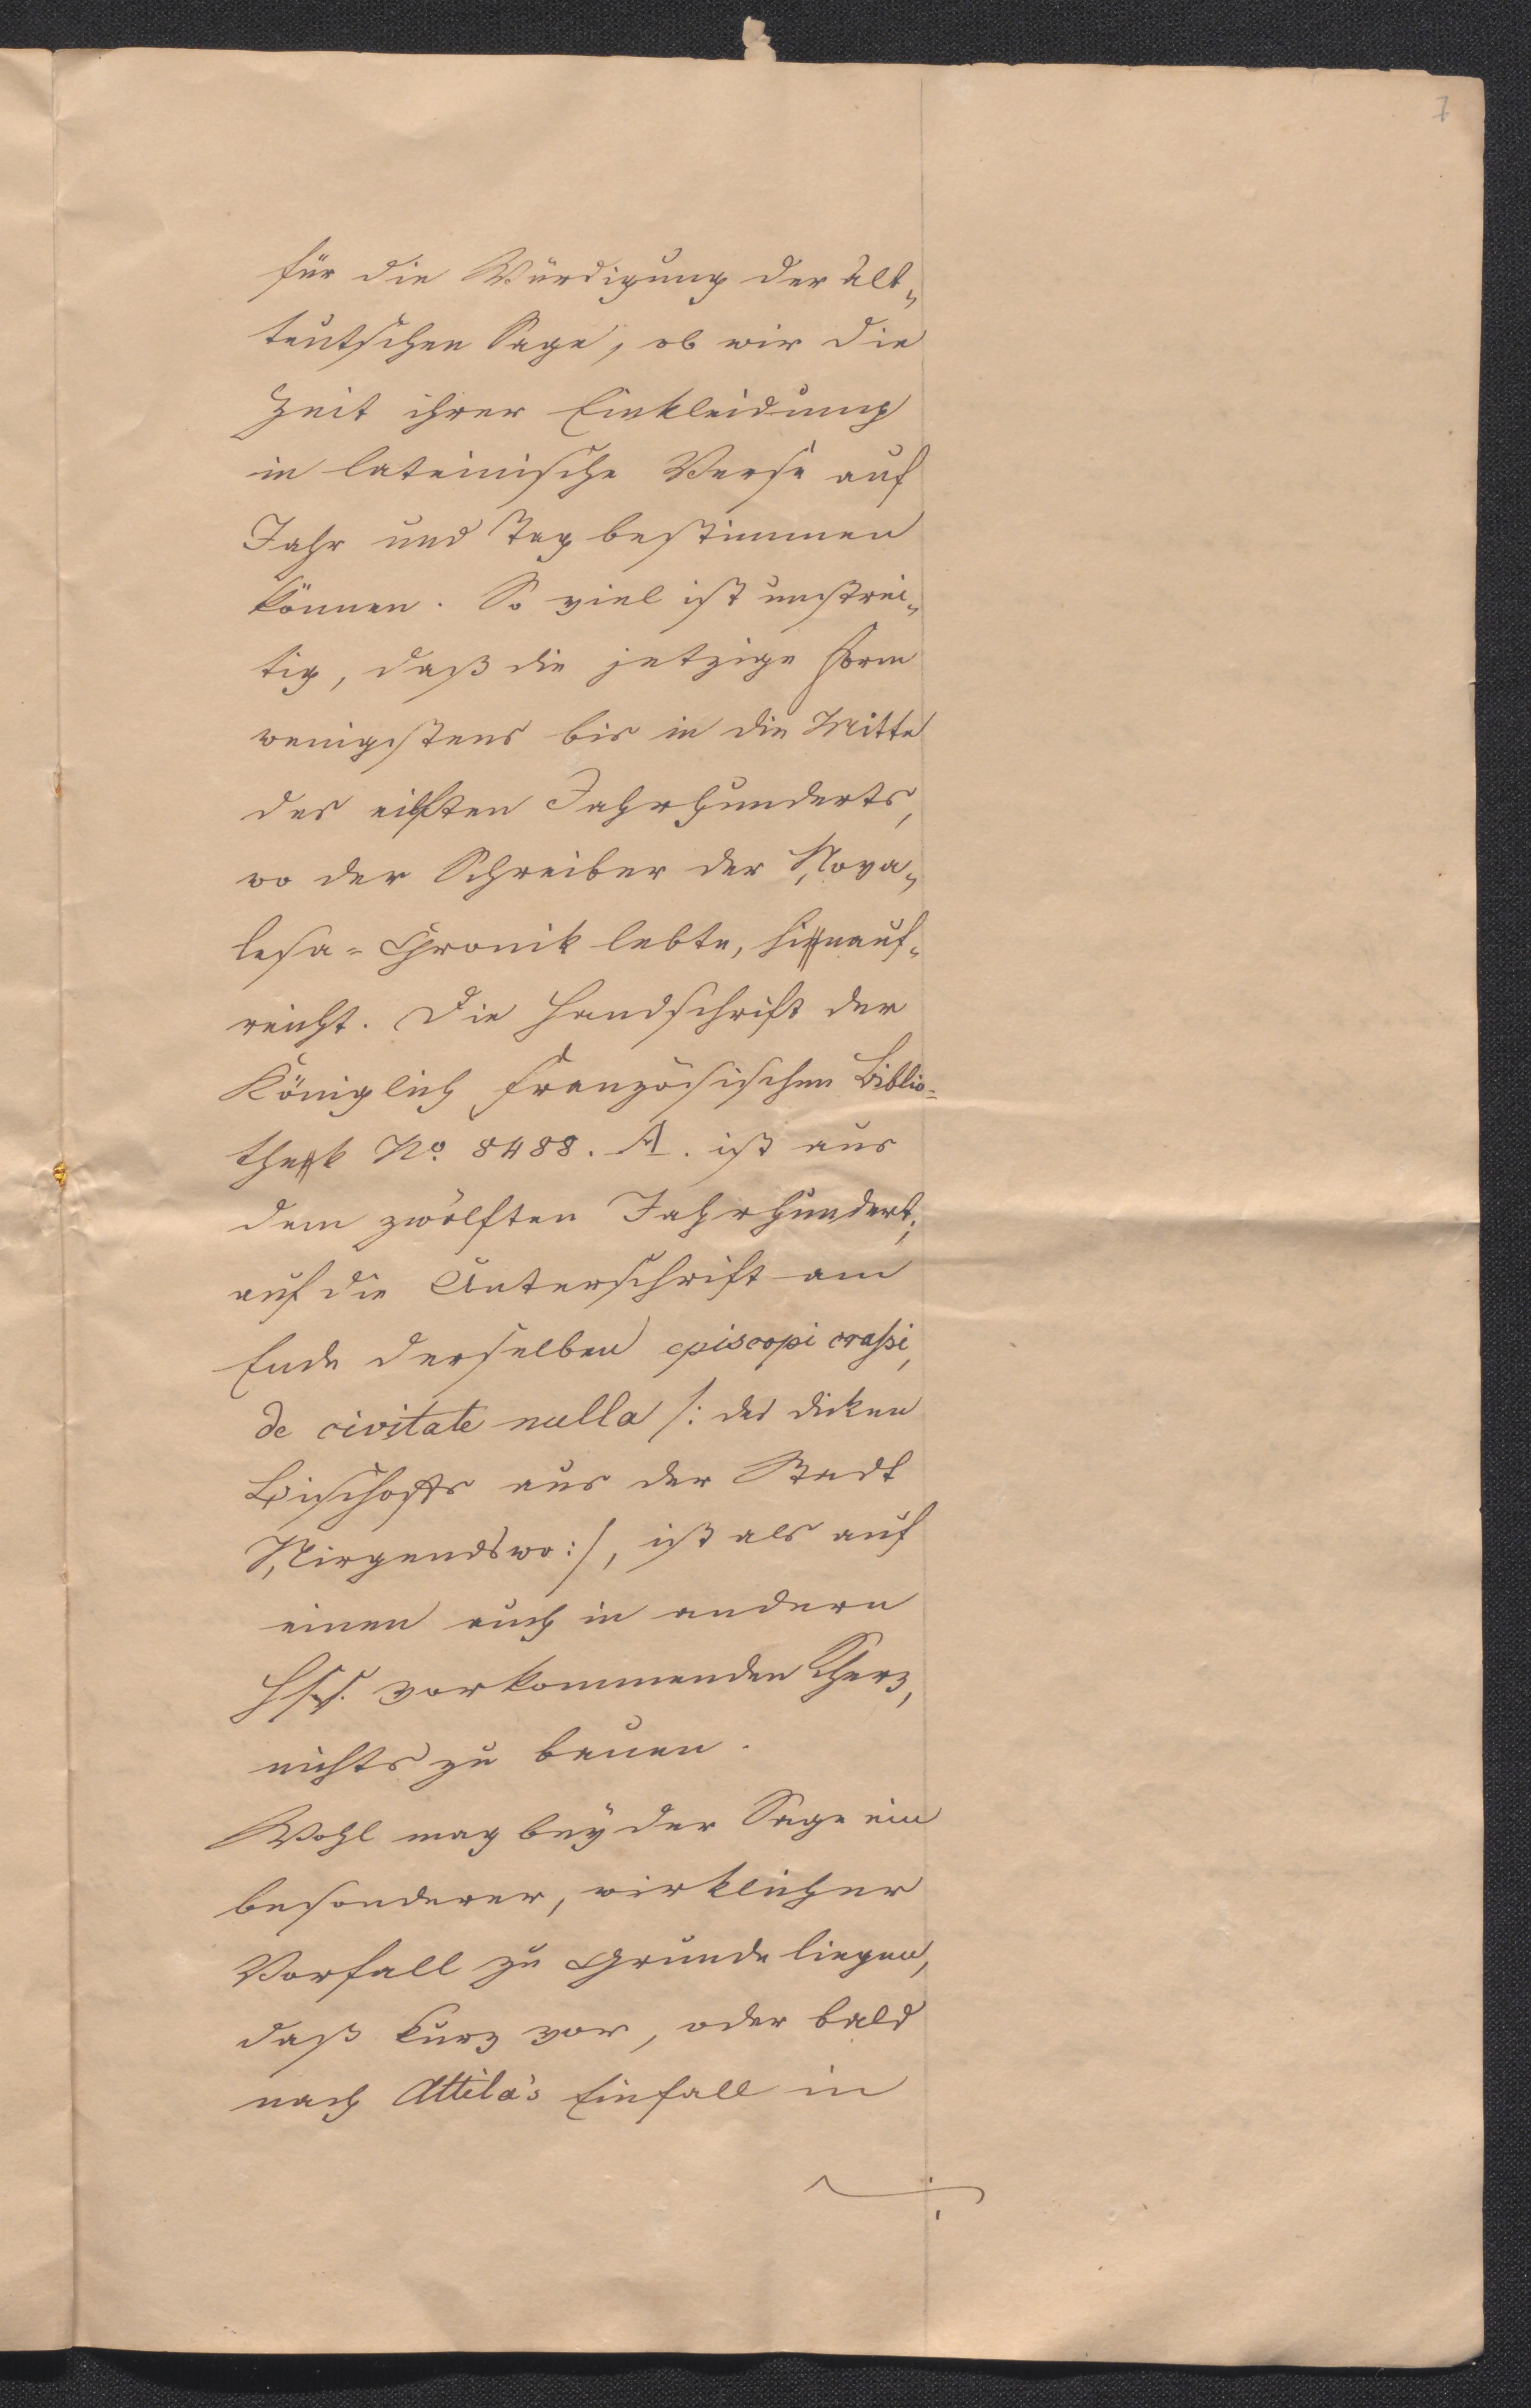 7
für die Würdigung der alt„
teutschen Sage, ob wir die
Zeit ihrer Einkleidung
in lateinische Verse auf
Jahr und Tag bestimmen
können. So viel ist unstrei„
tig, daß die jetzige Form
wenigstens bis in die Mitte
des eilften Jahrhunderts,
wo der Schreiber der Nova„
lesa-Chronik lebte, hinauf-
reicht. Die Handschrift der
Königlich französischen Biblio-
thek No. 8488. A. ist aus
dem zwölften Jahrhundert;
auf die Unterschrift am
Ende derselben episcopi crassi,
de civitate nulla /: des dicken
Bischoffs aus der Stadt
Nirgendswo :/, ist als auf
einen auch in andern
Hss. vorkommenden Scherz,
nichts zu bauen.
Wohl mag bey der Sage ein
besonderer, wirklicher
Vorfall zu Grunde liegen,
daß kurz vor, oder bald
nach Attila's Einfall in